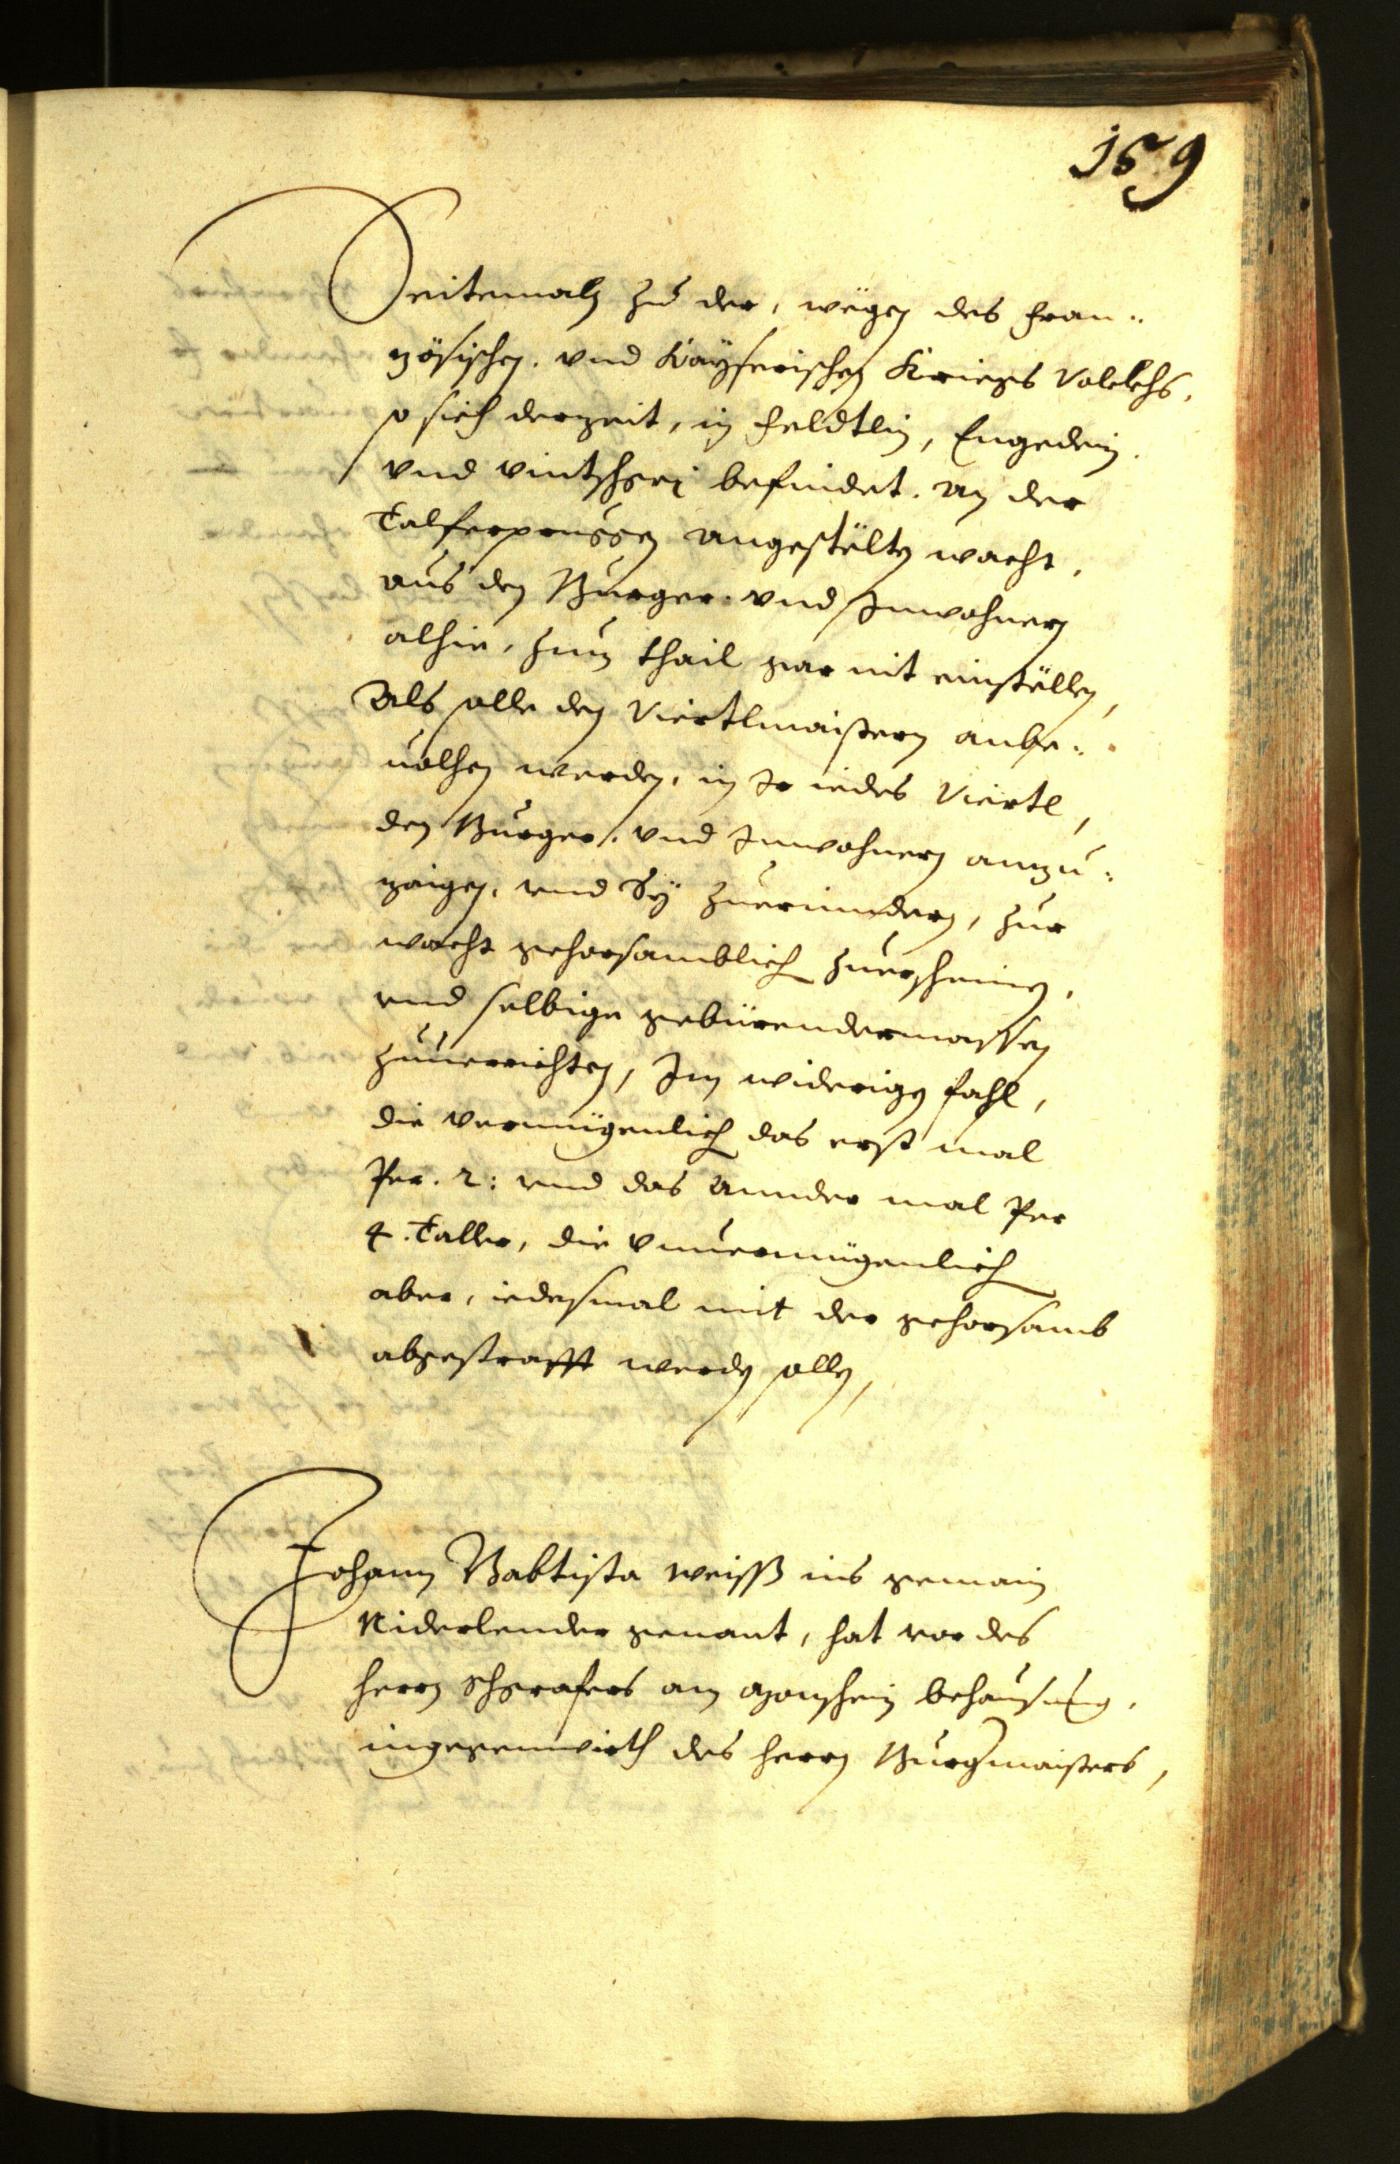 159
Seitemaln zu der, wëgen des Fran¬
zösischen. und Kayserischen Kriegs Volckhs,
so sich derzeit, in Feldtlin, Engedein
und Vintschgei befindet. an der
Talferpruggen angestëlten wacht,
aus den Burger. und Inwohnern
alhie, zum thail gar nit einstëllen,
Als solle den Viertlmaistern anbe¬
uolhen werden, in Ir iedes Viertl,
den Burger. und Inwohnern anzu¬
zaigen, und Sÿ zuerinndern, zur
wacht gehorsamblich zuerscheinen,
und selbige gebürendermassen
zuuerrichten, Im widerigen fahl,
die vermügenlich das erst mal
Per. 2: und das annder mal Per
4. Taller, die vnuermügenlich
aber, iedesmal mit der gehorsamb
abgestrafft werden sollen,
Johann Babtista Weiss ins gemain
Niderlender genant, hat vor des
herrn Schgrafers am behausung,
ingegenwirth des herrn Burgmaisters,